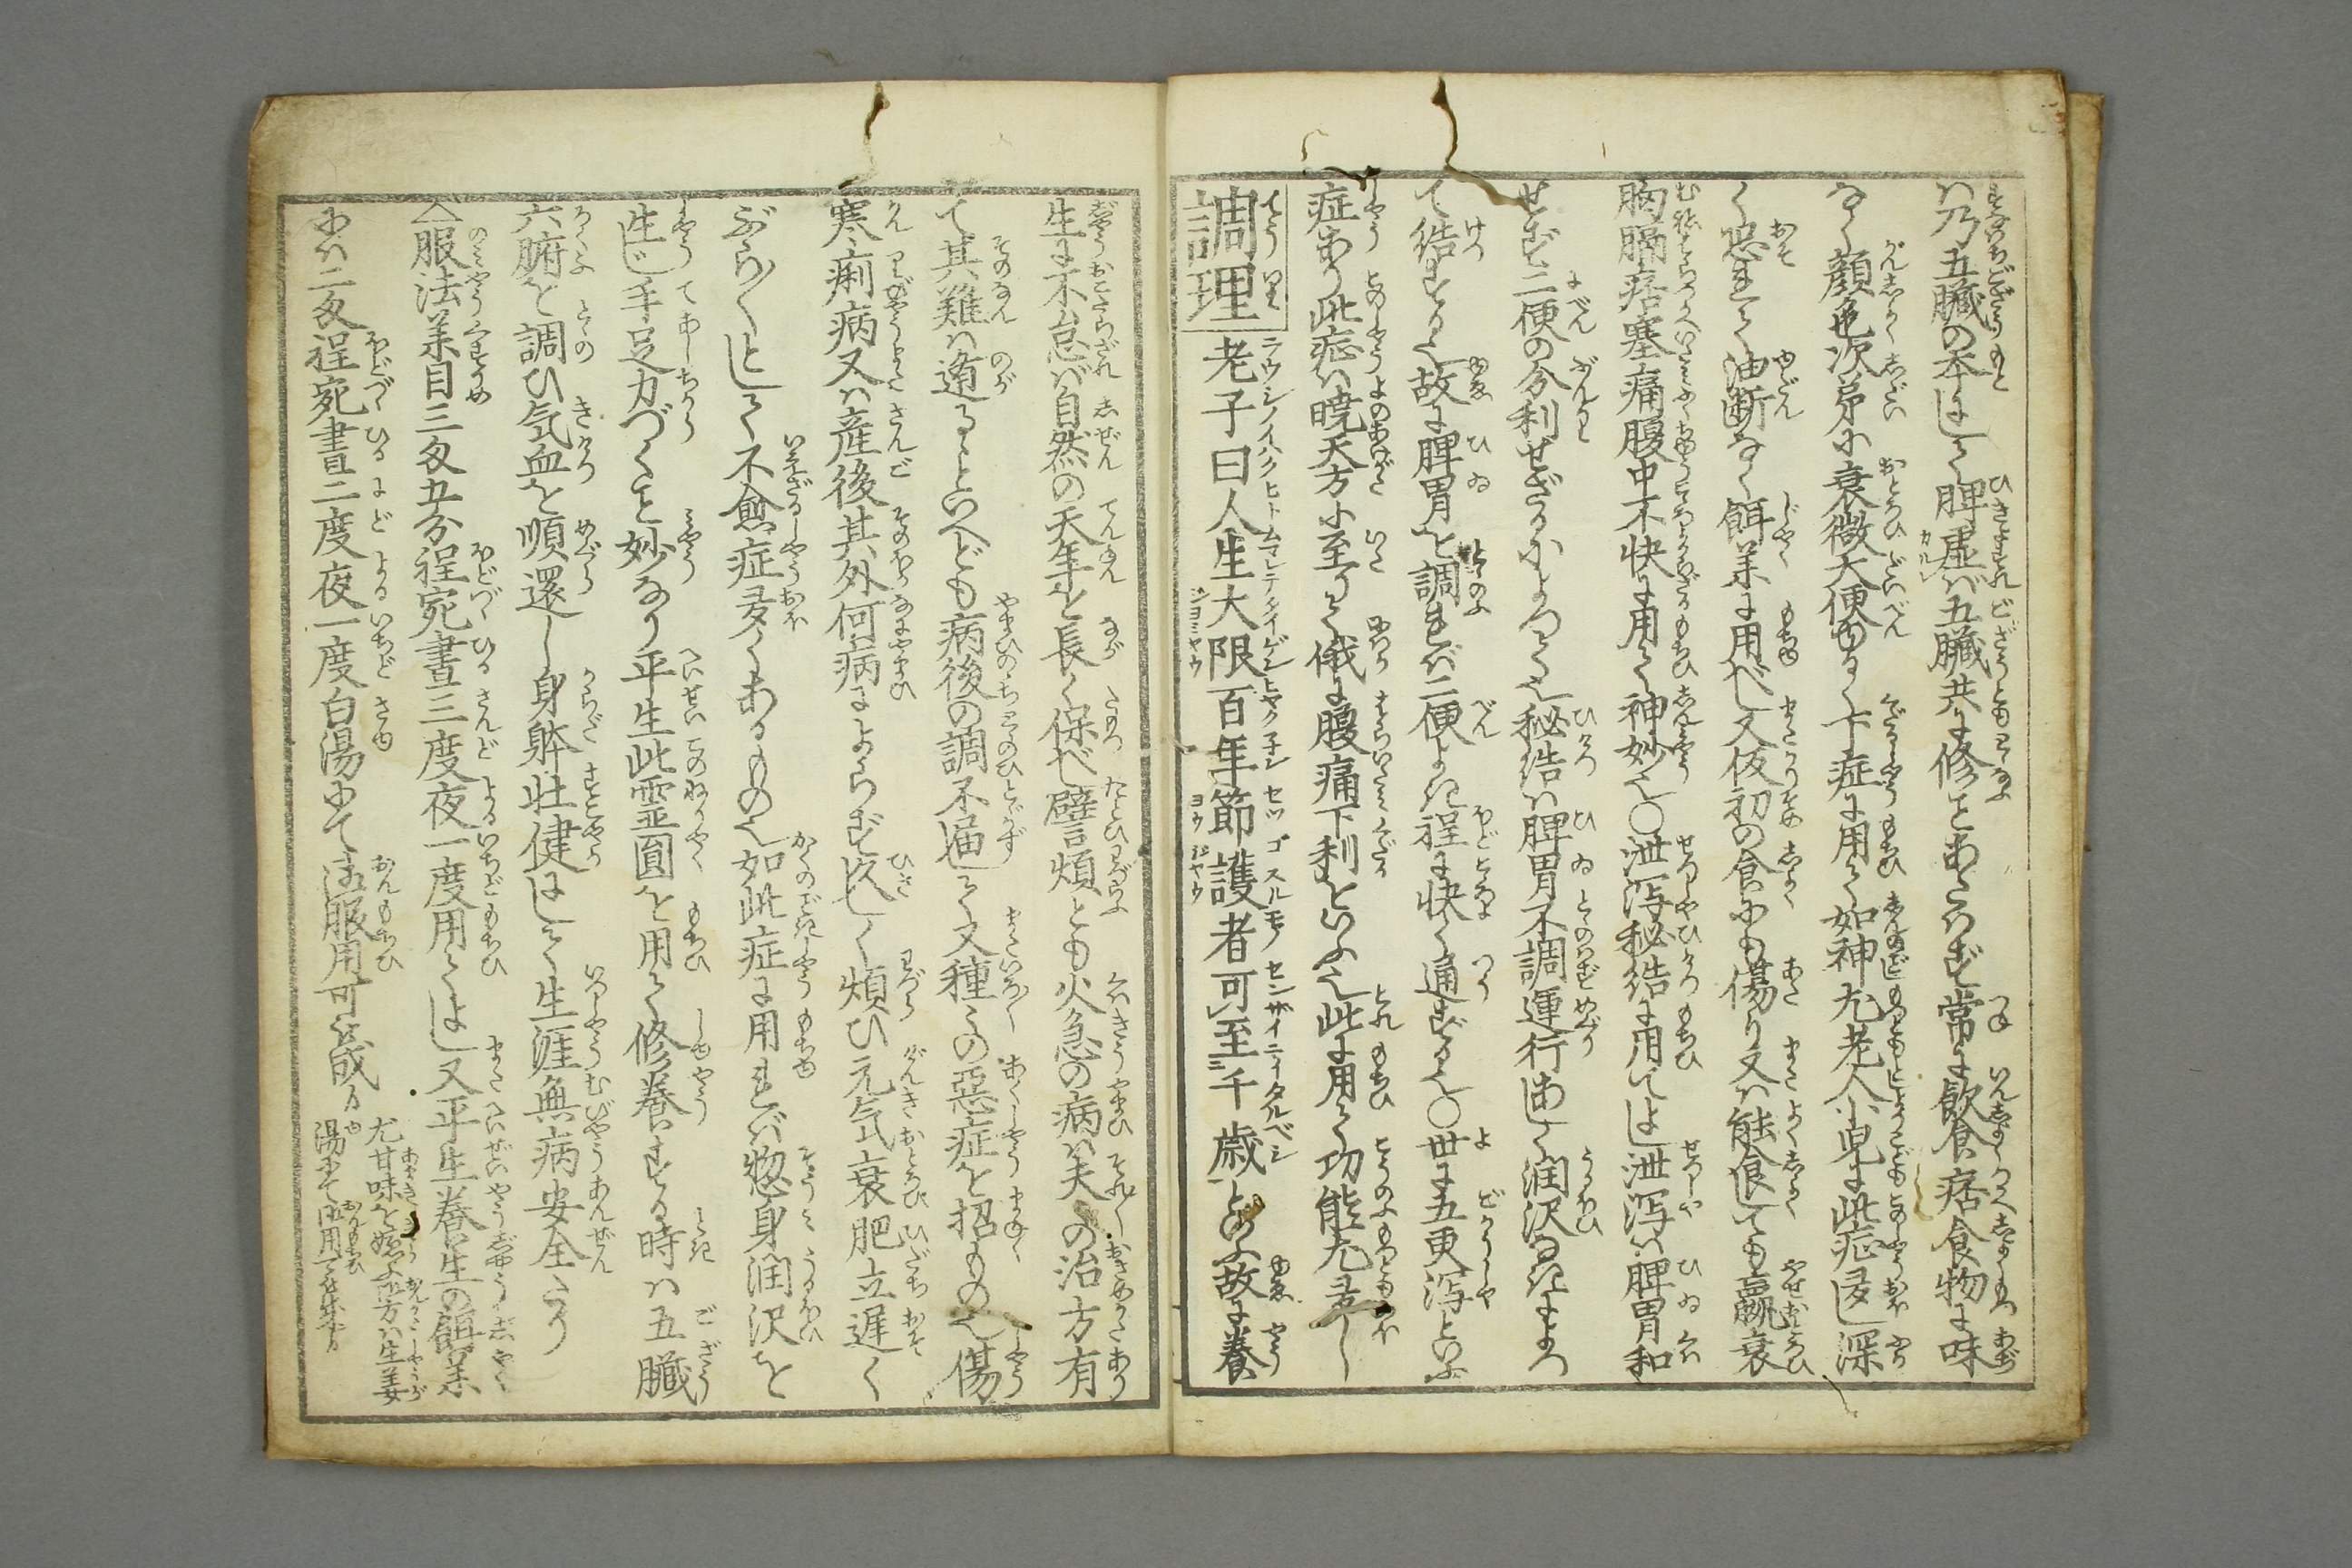 ハ乃五臓の本にして脾虚バ五臓共に修ことあたハず常に飲食痞食物に味
なく顔色次第に衰微大便ゆるく下症に用て如神尤老人小児に此症多し深
く恐れて油断なく餌薬に用べし又仮初の食にも傷り又ハ能食しても羸衰
胸膈痞塞痛腹中不快に用て神妙也〇泄瀉秘結に用てよし泄瀉ハ脾胃和
せず二便の分利せざるによつて也秘結ハ脾胃不調運行あしく潤沢なきによつ
て結する也故に脾胃を調れバ二便よき程に快く通ずる也〇世に五更瀉といふ
症あり此症ハ暁天方に至りて俄に腹痛下利をいふ也此に用て功能尤多し
調理 老子曰人生大限百年節護者可至千歳とのふ故に養
生に不怠バ自然の天年を長く保べし譬煩とも火急の病ハ夫〳〵の治方有
て其難ハ遁るといへども病後の調不届して又種々の悪症を招もの也傷
寒痢病又ハ産後其外何病によらず久しく煩ひ元気衰肥立遅く
ぶら〳〵として不愈症多くあるもの也如此症に用れバ惣身潤沢を
生じ手足力づくこと妙なり平生此霊円を用て修養する時ハ五臓
六腑を調ひ気血を順還し身躰壮健にして生涯無病安全たり
〈服法薬目三匁五分程宛昼三度夜一度用てよし又平生養生の餌薬
にハ二匁程宛昼二度夜一度白湯にて御服用可被成候
尤甘味を嫌ふ御方ハ生姜
湯にて御用可被成候